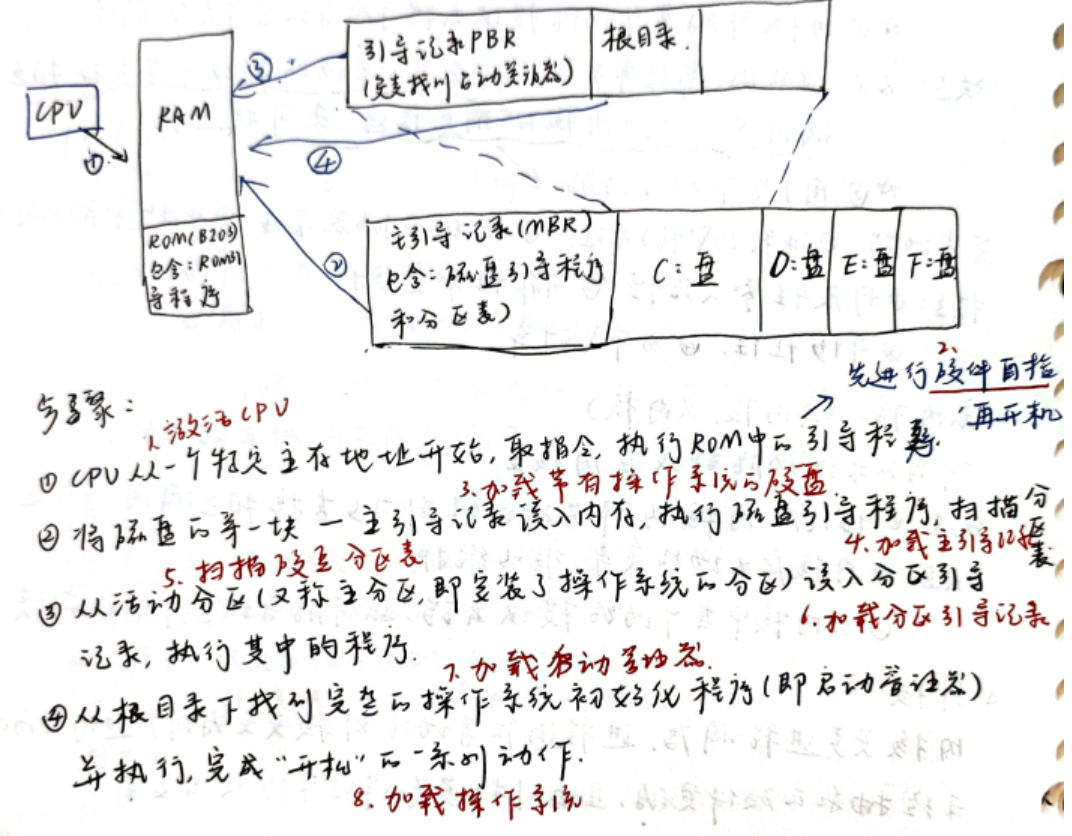 引导记录PBR
(负责找到启动管理器)
根目录.
③
CPU
①
RAM
④
ROM(BIOS)
包含:ROM引
导程序
②
主引导记录(MBR)
包含:磁盘引导程序
和分区表)
C:盘
D:盘
E:盘
F:盘
2、
先进行硬件自检
再开机
步骤:
1.激活CPU
① CPU从一个特定主存地址开始,取指令,执行ROM中的引导程序.
3.加载带有操作系统的硬盘
② 将磁盘的第一块—主引导记录读入内存,执行磁盘引导程序,扫描分区表
4.加载主引导记录
5.扫描硬盘分区表
③ 从活动分区(又称主分区,即安装了操作系统的分区)读入分区引导
6.加载分区引导记录
记录,执行其中的程序.
7.加载启动管理器.
④ 从根目录下找到完整的操作系统初始化程序(即启动管理器)
并执行,完成"开机"的一系列动作.
8.加载操作系统